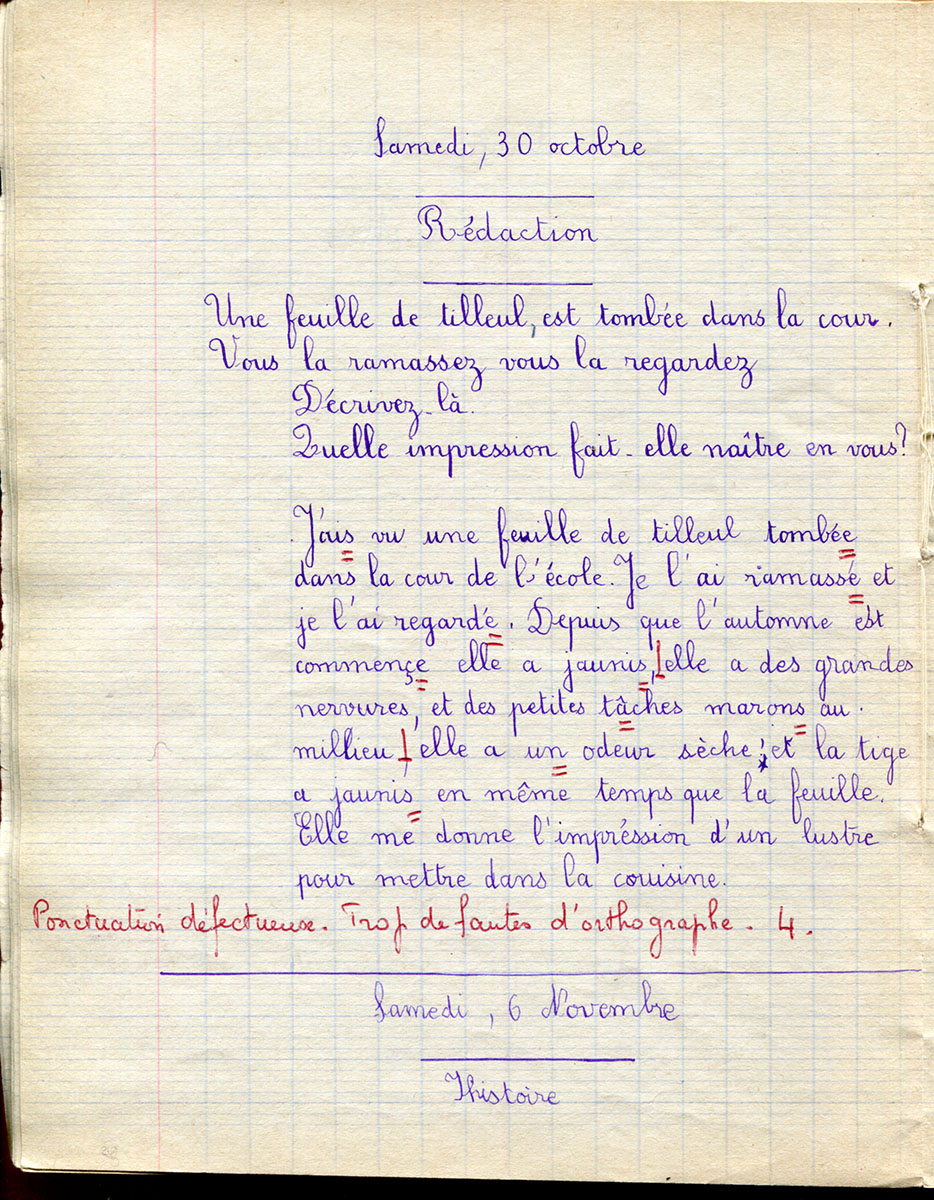 Samedi, 30 octobre
Rédaction
Une feuille de tilleul, est tombée dans la cour.
Vous la ramassez vous la regardez
Décrivez-là.
Quelle impression fait-elle naître en vous?
J'ais vu une feuille de tilleul tombée
dans la cour de l'école. Je l'ai ramassé et
je l'ai regardé. Depuis que l'automne est
commençe elle a jaunis, elle a des grandes
nervures, et des petites tâches marons au
millieu, elle a un odeur sèche; et la tige
a jaunis en même temps que la feuille.
Elle me donne l'impréssion d'un lustre
pour mettre dans la couisine.
Ponctuation défectueuse. Trop de fautes d'orthographe. 4.
Samedi, 6 Novembre
Histoire